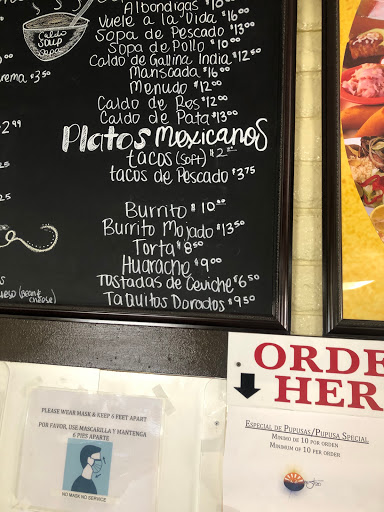 Albondigas $10.00
Vuelve a la Vida $16.00
Sopa de Pescado $13.00
Sopa de Pollo $10.00
Caldo de Gallina India $12.50
Mariscada $16.00
Menudo $12.00
Caldo de Res $12.00
Caldo de Pata $13.00
Caldo
SOUP
Sopa
rema $3.50
2.99
Platos Mexicanos
tacos (soft) $2
tacos de Pescado $3.75
Burrito $10.00
Burrito Mojado $13.50
Torta $8.50
Huarache $9.00
Tostadas de Ceviche $6.50
Taquitos Dorados $9.50
(Bean &
cheese)
PLEASE WEAR MASK & KEEP 6 FEET APART
POR FAVOR, USE MASCARILLA Y MANTENGA
6 PIES APARTE
NO MASK NO SERVICE
ORDE
HER
Especial de Pupusas/Pupusa Special
Minimo de 10 por orden
Minimum of 10 per order